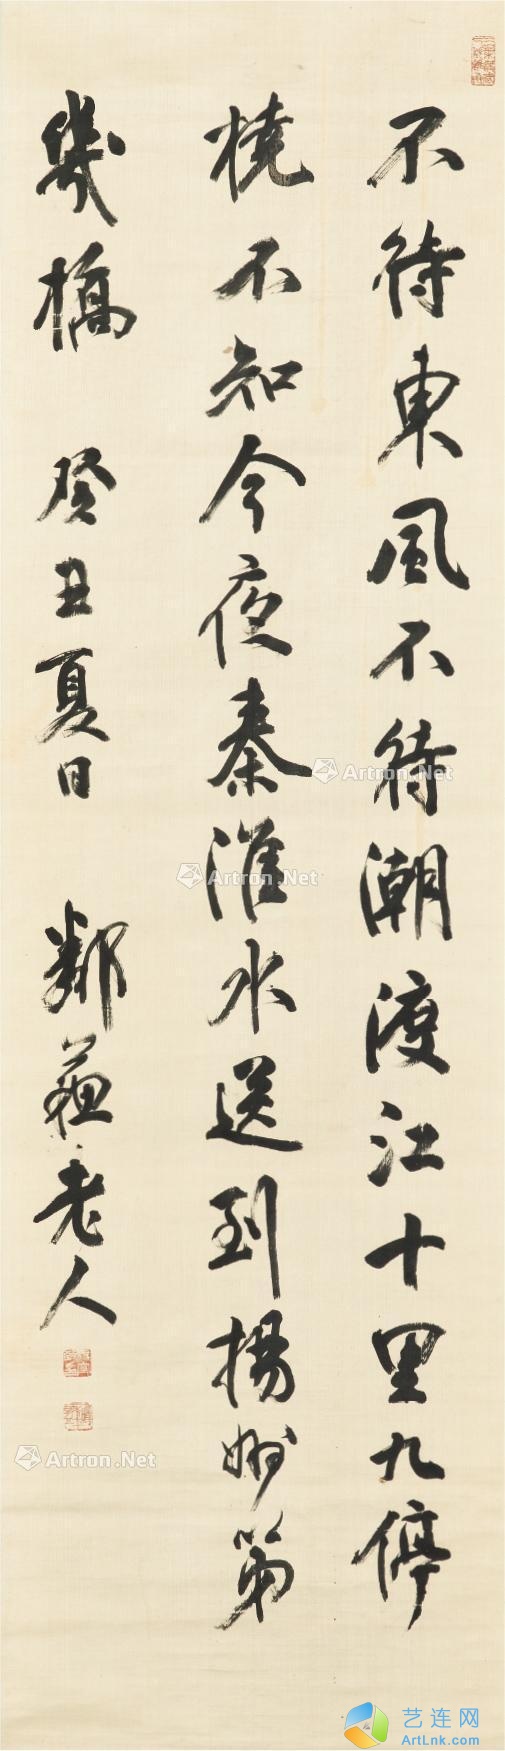 不待東風不待潮渡江十里九停
橈不知今夜秦淮水送到揚州第
幾橋 癸丑夏日 鄰蘇老人
Artron.Net
Artron.Net
Artron.Net
艺连网
ArtLnk.com